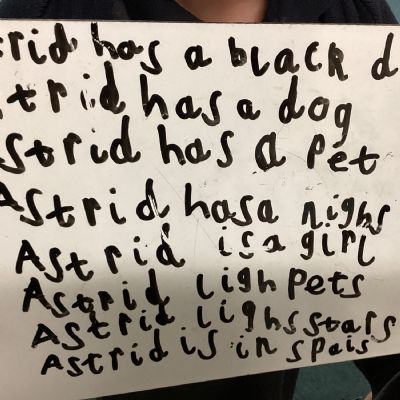 trid has a black d
strid has a dog
strid has a pet
Astrid has a nighs
Astrid is a girl
Astrid ligh pets
Astrid lighs stars
Astrid is in spais